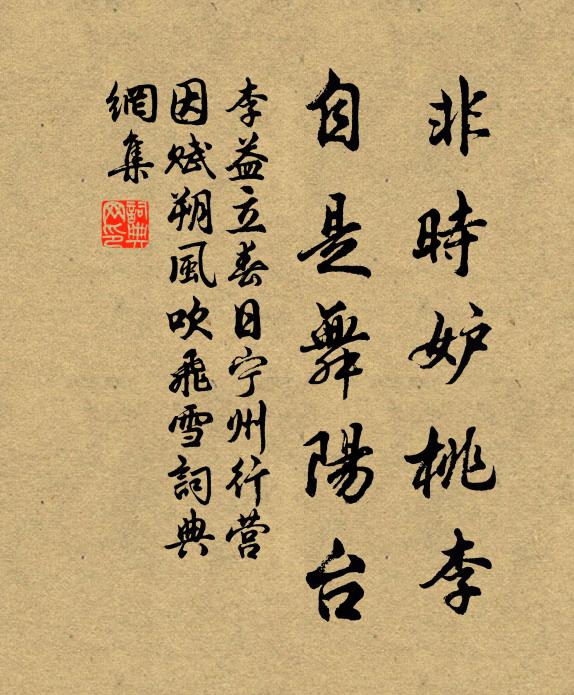 非時妒桃李
自是舞陽台
李益立春日宁州行营
因赋朔風吹飛雪詞典
網集
詞典
网印